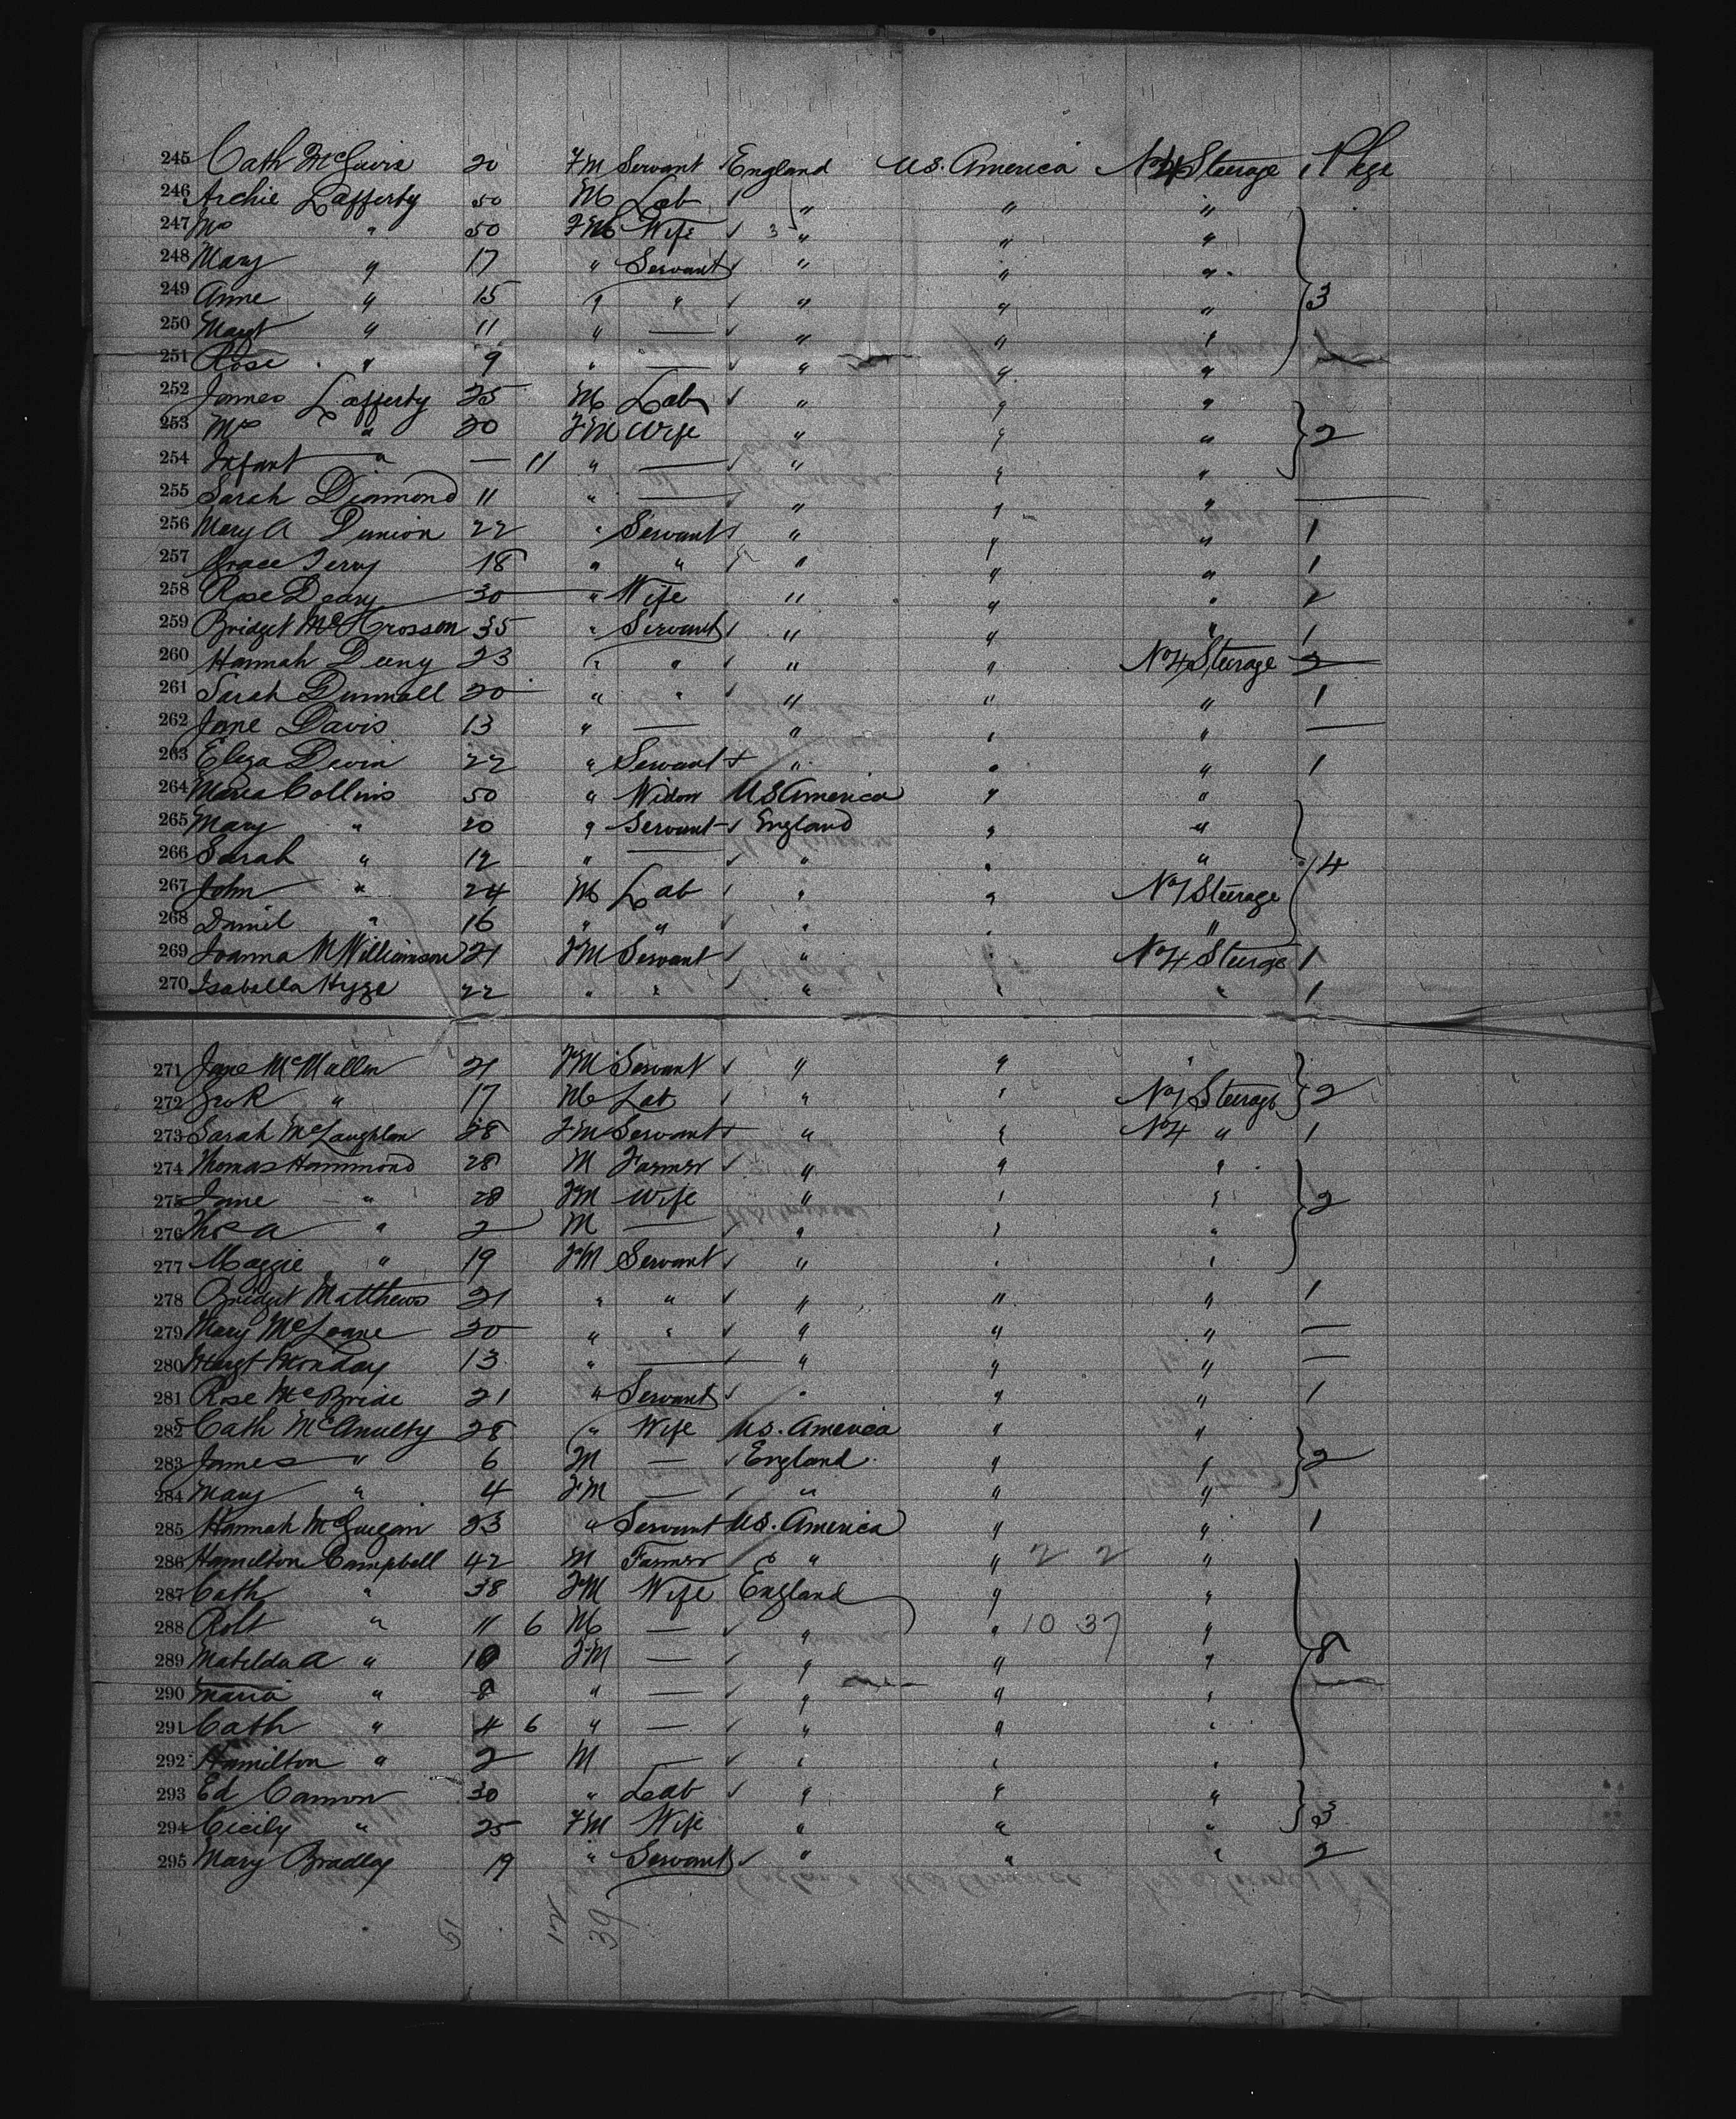 245 Cath McGuire 20 FM Servant England U.S. America No 4 Steerage 1 Pkge
246 Archie Lafferty 50 M Lab " " "
247 Mrs " 50 FM Wife 3 " " "
248 Mary " 17 " Servant " " "
249 Anne " 15 " " " " " 3
250 Margt " 11 " — " " "
251 Rose " 9 " — " " "
252 James Lafferty 25 M Lab " " "
253 Mrs " 20 FM Wife " " " 2
254 Infant " — 11 " — " " "
255 Sarah Diamond 11 " — " " " —
256 Mary A Dunion 22 " Servant " " " 1
257 Grace Terry 18 " " " " " 1
258 Rose Deary 30 " Wife " " "
259 Bridget McCrossen 35 " Servant " " " 1
260 Hannah Deeny 23 " " " " No 4 Steerage 2
261 Sarah Dunnall 20 " " " " " 1
262 Jane Davis 13 " — " " " —
263 Eliza Devin 22 " Servant " " " 1
264 Maria Collins 50 " Widow U S America " "
265 Mary " 20 " Servant England " "
266 Sarah " 12 " — " " " 4
267 John " 24 M Lab " " No 1 Steerage
268 Daniel " 16 " " " " "
269 Joanna McWilliamson 21 FM Servant " " No 4 Steerge 1
270 Isabella 22 " " " " " 1
271 Jane McMullen 21 FM Servant " " "
272 " 17 M Lab " " No 1 Steerage 2
273 Sarah McLaughlan 28 FM Servant " " No 4 " 1
274 Thomas Hammond 28 M Farmer " " "
275 Jane " 28 FM Wife " " " 2
276 Thos A " 2 M — " " "
277 Maggie " 19 FM Servant " " "
278 Bridget Matthews 21 " " " " " 1
279 Mary McLoane 20 " " " " " —
280 Margt Monday 13 " — " " " —
281 Rose McBride 21 " Servant " " " 1
282 Cath McAnulty 28 " Wife U.S. America " "
283 James " 6 M — England " " 2
284 Mary " 4 FM — " " "
285 Hannah McGuigan 23 " Servant U.S. America " " 1
286 Hamilton Campbell 42 M Farmer " " 2 2 "
287 Cath " 38 FM Wife England " "
288 Robt " 11 6 M — " " 10 37 "
289 Matilda A " 10 FM — " " " 8
290 Maria " 8 " — " " "
291 Cath " 4 6 " — " " "
292 Hamilton " 2 M — " " "
293 Ed Cannon 30 " Lab " " "
294 Cicily " 25 FM Wife " " " 3
295 Mary Bradley 19 " Servant " " " 2
51 12 39